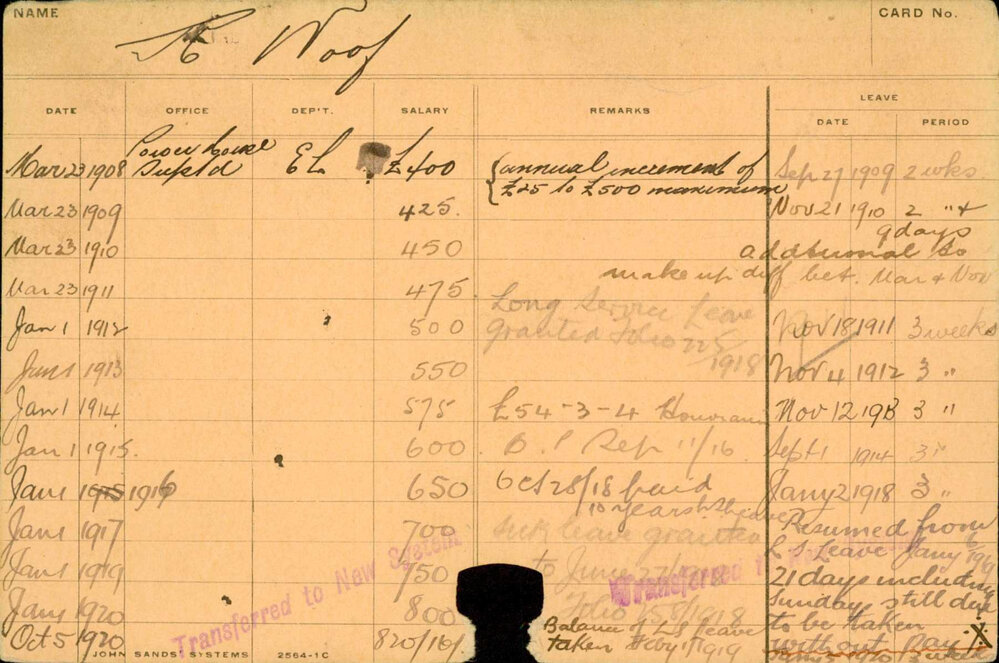 NAME
CARD No.
Woof
DATE OFFICE DEP'T. SALARY REMARKS LEAVE
DATE PERIOD
Mar 23 1908 Power house Supt'd EL £400 {annual increment of £25 to £500 maximum Sep 27 1909 2 wks.
Mar 23 1909 425. Nov 21 1910 2 " +
9 days
Mar 23 1910 450 additional to
make up diff bet. Mar & Nov
Mar 23 1911 475
Long Service Leave
Jan 1 1912 500 granted Folio 1918 Nov 18 1911 3 weeks
1913 550 Nov 4 1912 3 "
Jan 1 1914 575 £54-3-4 Honorarium Nov 12 1913 3 "
Jan 1 1915. 600 Rep 11/16 Sept 1 1914 3 "
Jan 1 1915 1916 650 Oct 28/18 paid Jany 2 1918 3 "
10 years leave
Jan 1 1917 700 sick leave granted Resumed from
L S Leave Jany 1919
Jan 1 1919 750 to June 21 days including
Jan 1 1920 800 Folio 1918 Sunday still due
Oct 5 1920 820/10/ Balance of LS leave to be taken
taken Feby 1/1919 without pay. X
Transferred to New System
Transferred
JOHN SANDS SYSTEMS 2564-1C